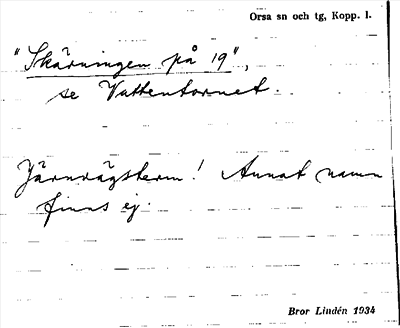 Orsa sn och tg, Kopp. l.
"Skärningen på 19",
se Vattentornet.
Järnvägsterm! Annat namn
finns ej.
Bror Lindén 1934